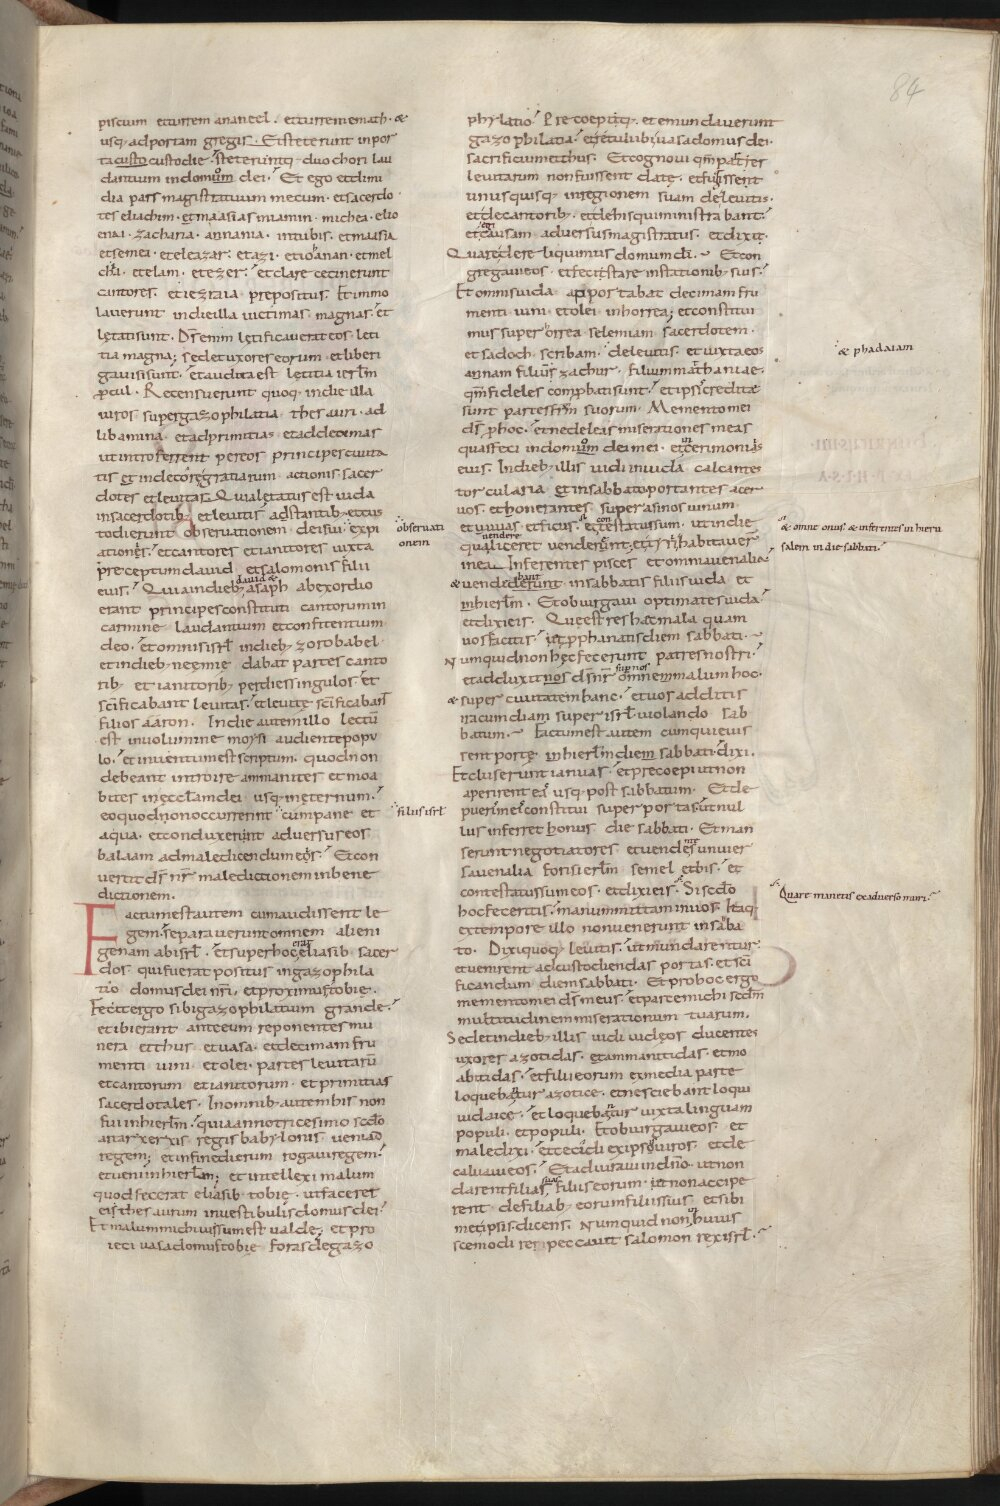 84
piscium etturrem ananeel. etturrem emath. &
usq; ad portam gregis. Et steterunt in por
ta custo custodie. steteruntq; duo chori lau
dantium in domum dei. Et ego et dimi
dia pars magistratuum mecum. et sacerdo
tes eliachim. et maasias miamin. michea. elio
enai. zacharia. annania. intubis. et maasia
et semei. et eleazar. et azi. et iohanan. et mel
chi. et elam. et ezer. et clare cecinerunt
cantores. et iezraia prepositus. Et immo
laverunt in die illa victimas. magnas. et
lętati sunt. Ds enim lętificaverat eos. leti
tia magna; sed et uxores eorum. et liberi
gavisi sunt. et audita est lętitia ierlm
procul. Recensuerunt quoq; in die illa
viros super gazophilatia. thesauri. ad
libamina. et ad primitias. et ad decimas
ut introferrent per eos principes civita
tis et in decore gratiarum actionis. sacer
dotes et levitas. Quia lętatus est iuda
in sacerdotib; et levitis adstantib; et cus
todierunt observationem dei sui. et expi
ationes. et cantores et ianitores iuxta
preceptum david. et salomonis filii
eius. Quia in dieb; david & asaph ab exordio
erant principes constituti cantorum in
carmine laudantium et confitentium
deo. et omnis isrl in dieb; zorobabel
et in dieb; neęmie dabat partes canto
rib; et ianitorib; per dies singulos. et
scificabant levitas. et levite scificabant
filios aaron. In die autem illo lectum
est in volumine moysi audiente popu
lo. et inventum est scriptum. quod non
debeant introire ammanites et moa
bites in ęcclam dei usq; in ęternum.
eo quod non occurrerint cum pane et
aqua. et conduxerunt adversus eos
balaam ad maledicendum eos. Et con
vertit ds nr maledictionem in bene
dictionem.
Factum est autem cum audissent le
gem. separaverunt omnem alieni
genam ab isrl. et super hoc erat eliasib sacer
dos. qui fuerat positus in gazophila
tio domus dei nri. et proximus tobie.
Fecit ergo sibi gazophilatium grande.
et ibi erant ante eum reponentes mu
nera et thus et vasa. et decimam fru
menti vini et olei. partes levitarum
et cantorum et ianitorum. et primitias
sacerdotales. In omnib; autem his non
fui in hierlm. quia anno tricesimo scdo
artarxerxis regis babylonis veni ad
regem; et in fine dierum rogavi regem.
et veni in hierlm; et intellexi malum
quod fecerat eliasib tobie. ut faceret
ei thesaurum in vestibulis domus dei.
Et malum michi visum est valde; et pro
ieci vasa domus tobie foras de gazo
observati
onem
filius isrl
phylatio. Precoepitq;. et emundaverunt
gazophilatia. et retuli ibi vasa domus dei.
sacrificium et thus. Et cognovi qm partes
levitarum non fuissent datę. et fugissent
unusquisq; in regionem suam de levitis.
et de cantorib; et de his qui ministrabant.
et egi causam adversus magistratus. et dixi.
Quare dereliquimus domum di. Et con
gregavi eos. et feci stare in stationib; suis.
Et omnis iuda apportabat decimam fru
menti vini et olei in horrea; et constitui
mus super orrea selemiam sacerdotem.
et sadoch scribam. de levitis. et iuxta eos
annam filius zachur. filium mathaniae.
qm fideles comprobati sunt. et ipsis creditę
sunt partes frm suorum. Memento mei
ds pro hoc. et ne deleas miserationes meas
quas feci in domum dei mei. et in cerimoniis
eius. In dieb; illis vidi in iuda calcantes
torcularia et in sabbato portantes acer
vos. et honerantes super asinos vinum
et uvas. et ficus. et contestatus sum. ut in die
qua liceret vendere venderent. et tyrii habitaver
in ea. Inferentes pisces et omnia venalia.
& vendebant in sabbatis filiis iuda et
in hierlm. Et obiurgavi optimates iuda.
et dixi eis. Quę est res hęc mala quam
vos facitis. et prophanatis diem sabbati.
Numquid non hęc fecerunt patres nostri.
et adduxit ds nr super nos omnem malum hoc.
& super civitatem hanc. et vos additis
iracundiam super isrl violando sab
batum. Factum est autem cum quievis
sent portę in hierlm diem sabbati. dixi.
Et cluserunt ianuas. et precoepi ut non
aperirent eas usq; post sabbatum. Et de
pueris meis constitui super portas. ut nul
lus inferret honus die sabbati. Et man
serunt negotiatores. et vendentes univer
sa venalia foris ierlm semel et bis. et
contestatus sum eos. et dixi eis. Si scdo
hoc feceritis. manum mittam in vos. Itaq;
ex tempore illo non venerunt in sabba
to. Dixi quoq; levitis. ut mundarentur.
et venirent ad custodiendas portas. et sci
ficandum diem sabbati. Et pro hoc ergo
memento mei ds meus. et parce michi scdm
multitudinem miserationum tuarum.
Sed et in dieb; illis vidi iudęos ducentes
uxores azotidas. et ammanitidas. et mo
abitidas. et filii eorum ex media parte
loquebantur azotice. et nesciebant loqui
iudaice. et loquebantur iuxta linguam
populi. et populi. Et obiurgavi eos. et
maledixi. et cecidi ex ipsis viros. et de
calvavi eos. Et adiuravi in dno. ut non
darent filias suas filiis eorum. ut non accipe
rent de filiab; eorum filiis suis. et sibi
met ipsis dicens. Numquid non in huius
scemodi re. peccavit salomon rex isrl.
& phadaiam
& omne onus. & inferentes in hieru
salem in die sabbati.
Quare manetis ex adverso muri.